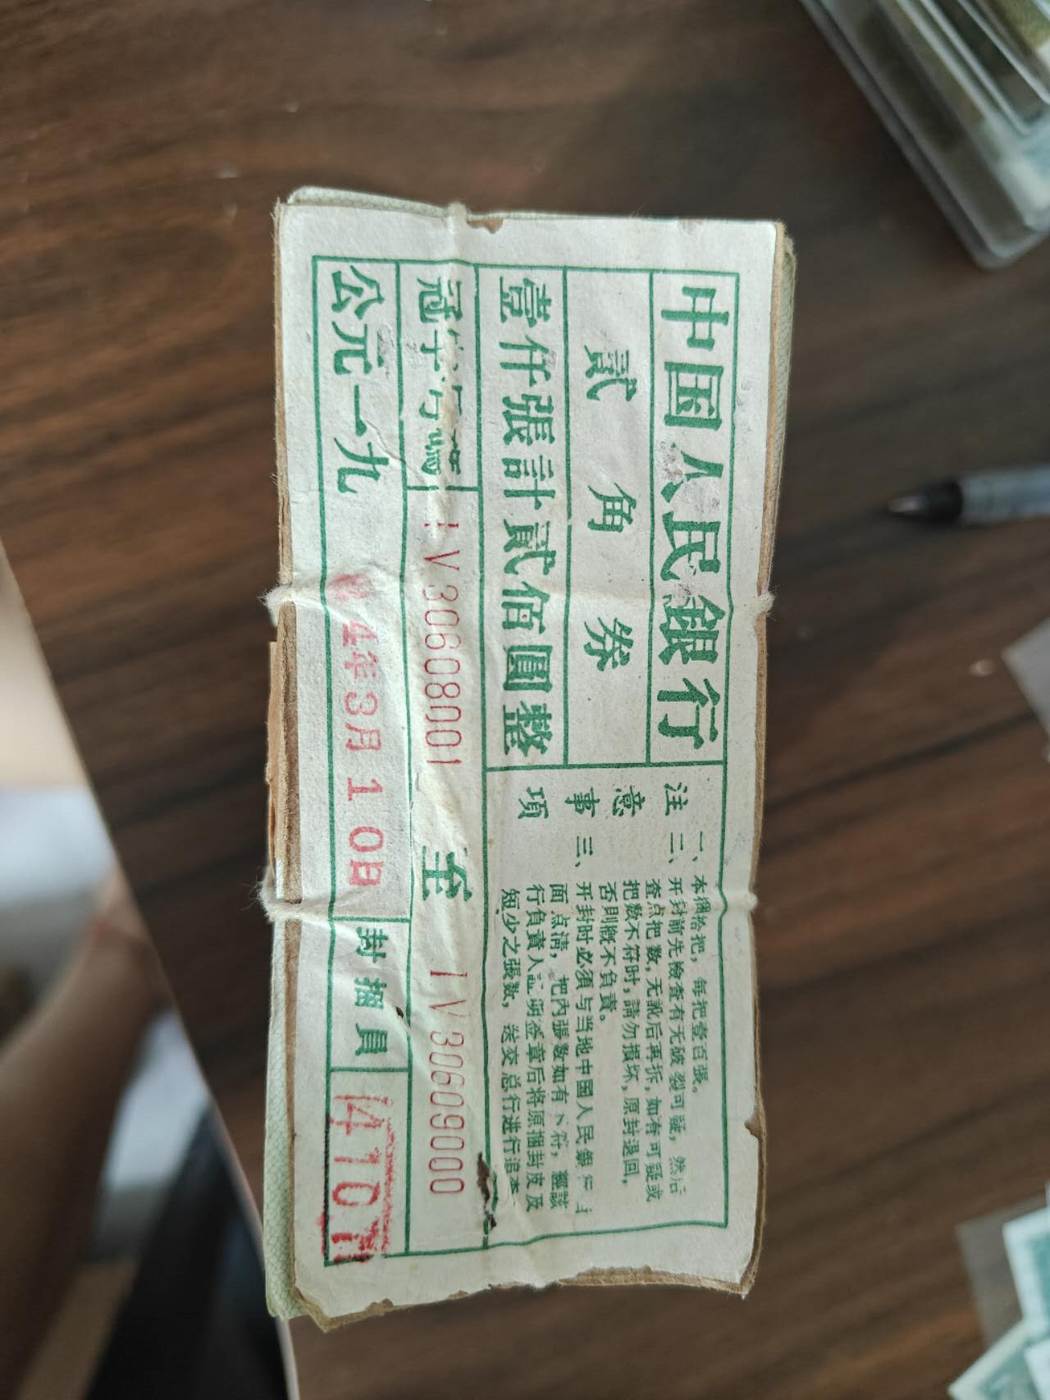 中国人民銀行
貳角券
壹仟張計貳佰圓整
冠字号碼
ⅠⅤ3060800Ⅰ 至 ⅠⅤ30609000
公元一九 4年3月10日
封捆員
注意事項
一、本捆拾把，每把壹百張。
二、開封前先檢查有无破裂可疑，然后
查点把数，无訛后再拆，如有可疑或
把数不符时，請勿損坏，原封退回，
否則概不負責。
三、开封时必須与当地中國人民銀
面点清，把內張数如有不符，應該
行負責人証明签章后将原捆封皮及
短少之張数，送交总行进行追查